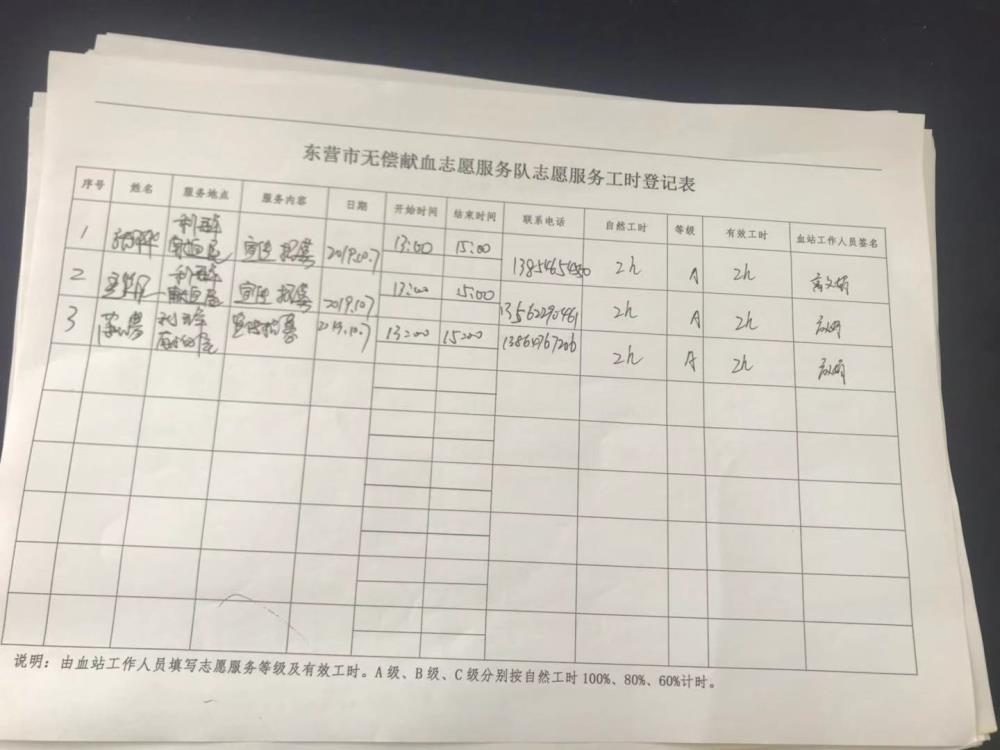 东营市无偿献血志愿服务队志愿服务工时登记表
序号 姓名 服务地点 服务内容 日期 开始时间 结束时间 联系电话 自然工时 等级 有效工时 血站工作人员签名
1 利群 献血屋 宣传 招募 2019.10.7 13:00 15:00 2h A 2h
2 利群 献血屋 宣传 招募 2019.10.7 13:00 15:00 13562290461 2h A 2h
3 宣传招募 2019.10.7 13:00 15:00 13864767206 2h A 2h
说明：由血站工作人员填写志愿服务等级及有效工时。A级、B级、C级分别按自然工时100%、80%、60%计时。